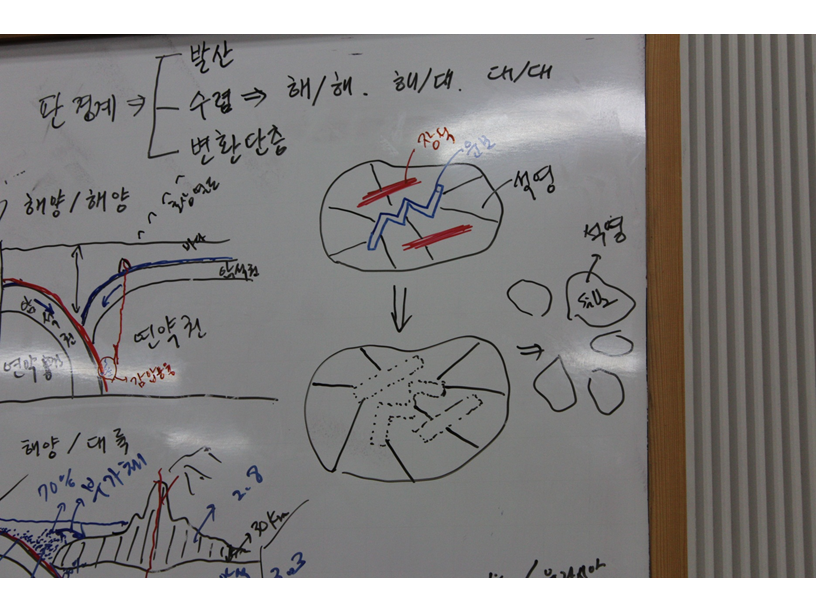 발산
판 경계 ⇒ 수렴 ⇒ 해/해. 해/대. 대/대
변환단층
장석
운모
석영
해양/해양
석영
암석권
암석권
연약권
연약권
감압용융
해양/대륙
70% 부가체
2.8
30km
3.3